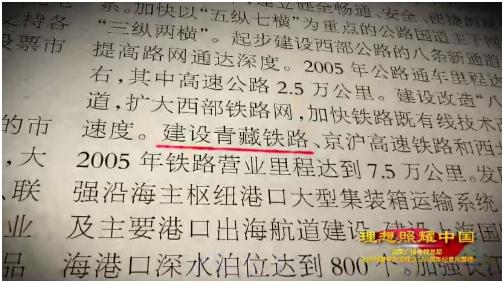 系。加快以“五纵七横”为重点的公路国道主干
“三纵两横”。起步建设西部公路的八条新通道
提高路网通达深度。2005年公路通车里程
右，其中高速公路2.5万公里。建设改造“八
道，扩大西部铁路网，加快铁路既有线技术改
的市 速度。建设青藏铁路、京沪高速铁路和西
，大 2005年铁路营业里程达到7.5万公里。发
、联 强沿海主枢纽港口大型集装箱运输系统
业 及主要港口出海航道建设
品 海港口深水泊位达到800个。加强长
股票市
理想照耀中国